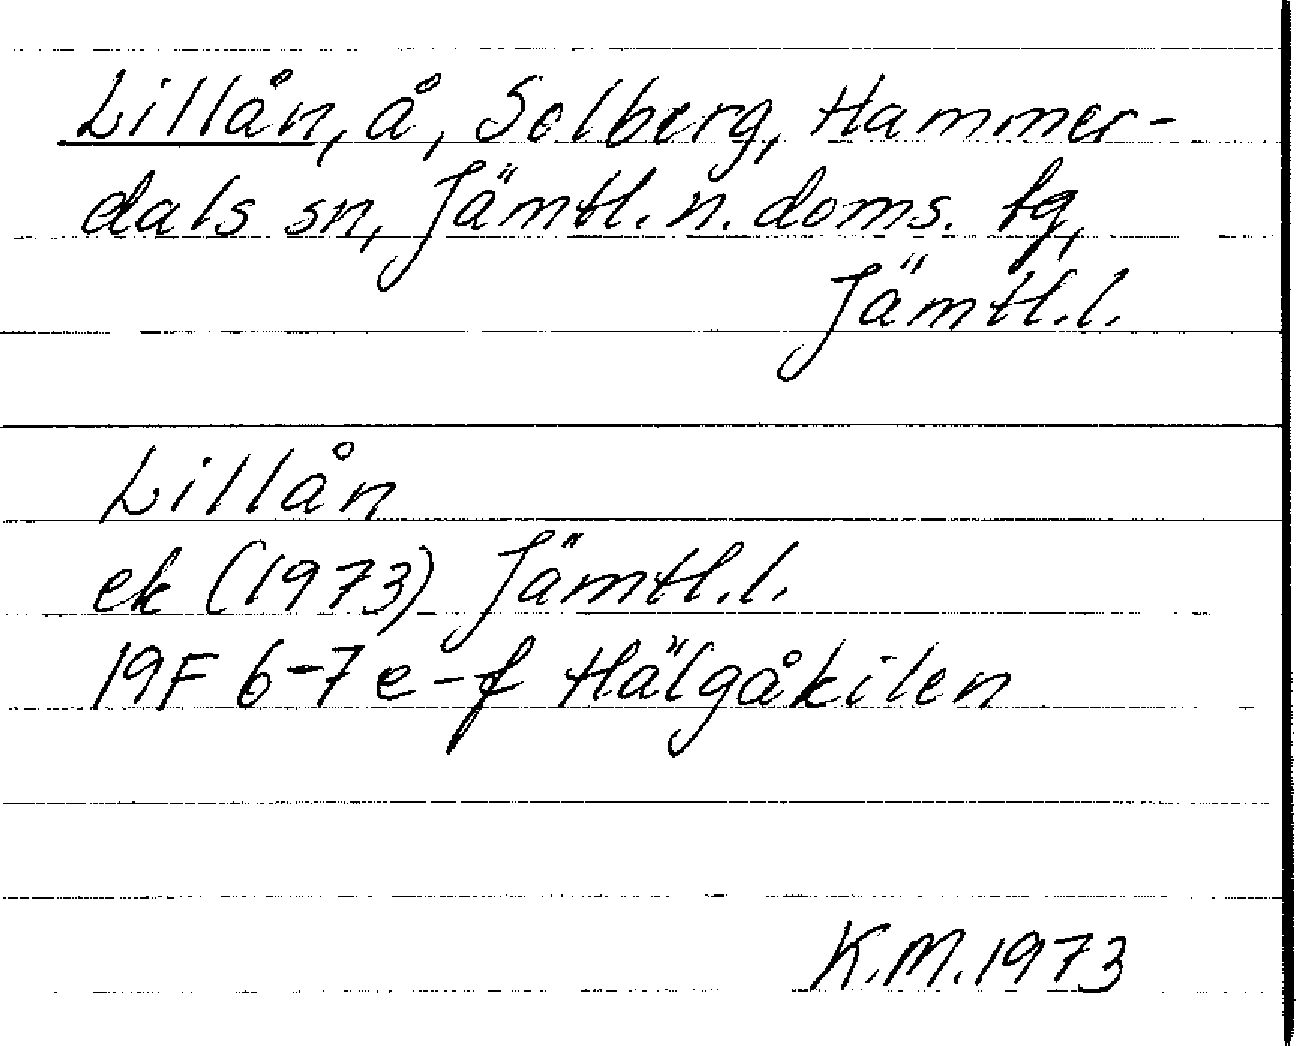 Lillån, å, Solberg, Hammer-
dals sn, Jämtl. n. doms. tg,
Jämtl.l.
Lillån
ek (1973) Jämtl.l.
19F 6-7 e-f Hälgåkilen
K.M.1973